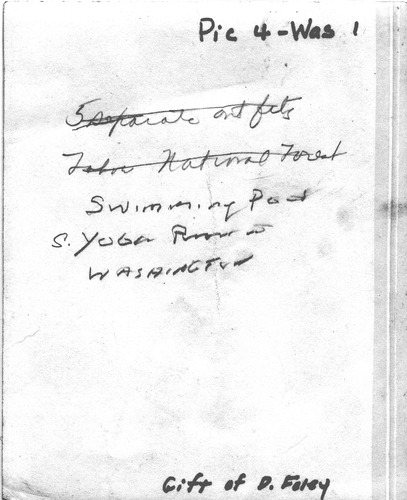 Pic 4 - Was 1
5 separate outfits
Tahoe National Forest
Swimming Pool
S. Yuba River
WASHINGTON
Gift of D. Foley